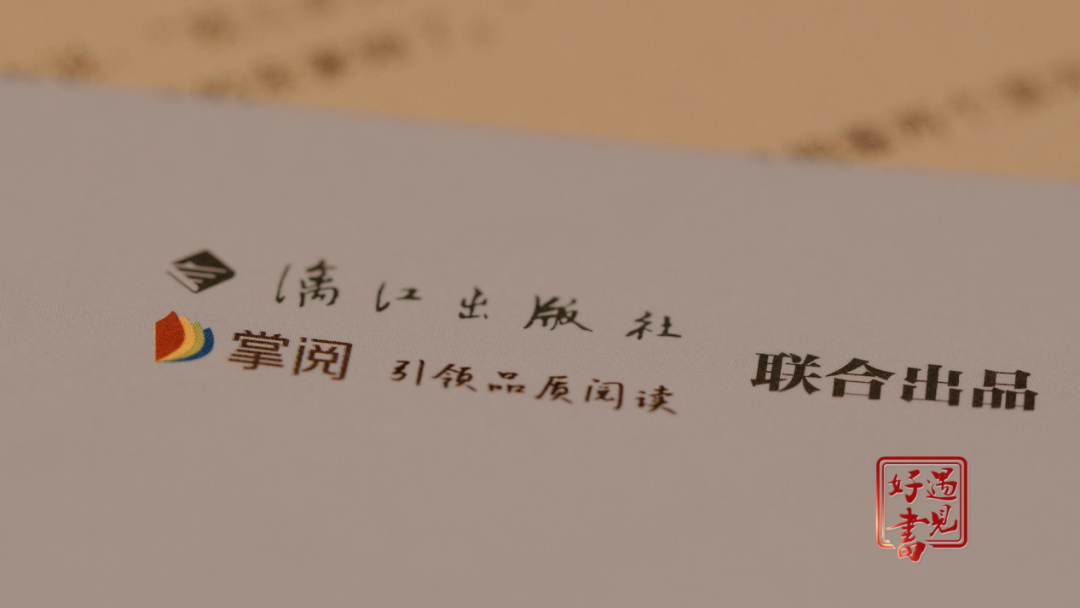 漓江出版社
掌阅 引领品质阅读
联合出品
遇見
好書